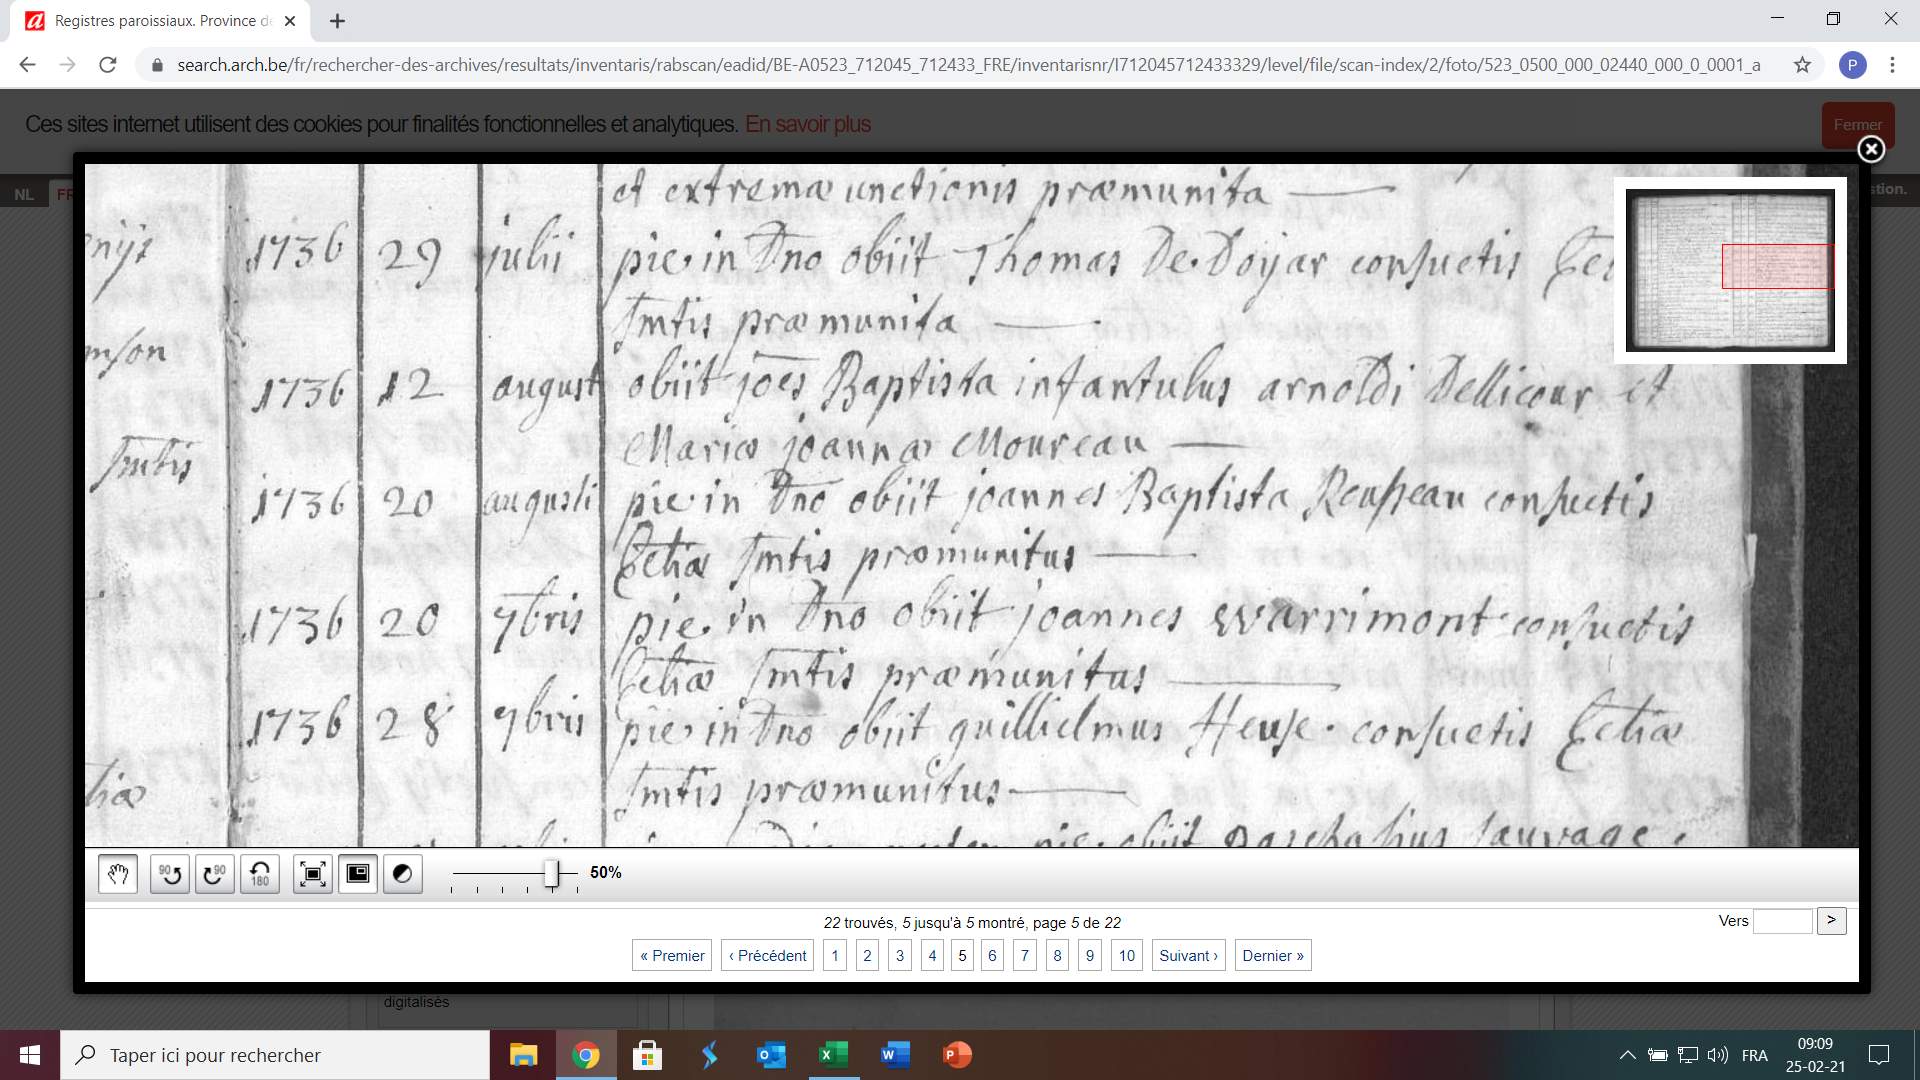 Registres paroissiaux. Province de
search.arch.be/fr/rechercher-des-archives/resultats/inventaris/rabscan/eadid/BE-A0523_712045_712433_FRE/inventarisnr/I712045712433329/level/file/scan-index/2/foto/523_0500_000_02440_000_0_0001_a
P
Ces sites internet utilisent des cookies pour finalités fonctionnelles et analytiques. En savoir plus
Fermer
NL FR
stion.
et extremæ unctionis præmunita
1736 29 julii pie in Dno obiit Thomas De Doyar consuetis
Smtis præmunita
1736 12 august obiit joes Baptista infantulus arnoldi Dellicour et
Mariæ joannæ Moureau
Smtis
1736 20 augusti pie in Dno obiit joannes Baptista Rousseau consuetis
Ecliæ Smtis præmunitus
1736 20 7bris pie in Dno obiit joannes Warrimont consuetis
Ecliæ Smtis præmunitus
1736 28 7bris pie in Dno obiit guillielmus Heuse consuetis Ecliæ
Smtis præmunitus
pie obiit paschasius sauvage
90 90 180
50%
22 trouvés, 5 jusqu'à 5 montré, page 5 de 22
Vers >
« Premier ‹ Précédent 1 2 3 4 5 6 7 8 9 10 Suivant › Dernier »
digitalisés
Taper ici pour rechercher
FRA
09:09
25-02-21